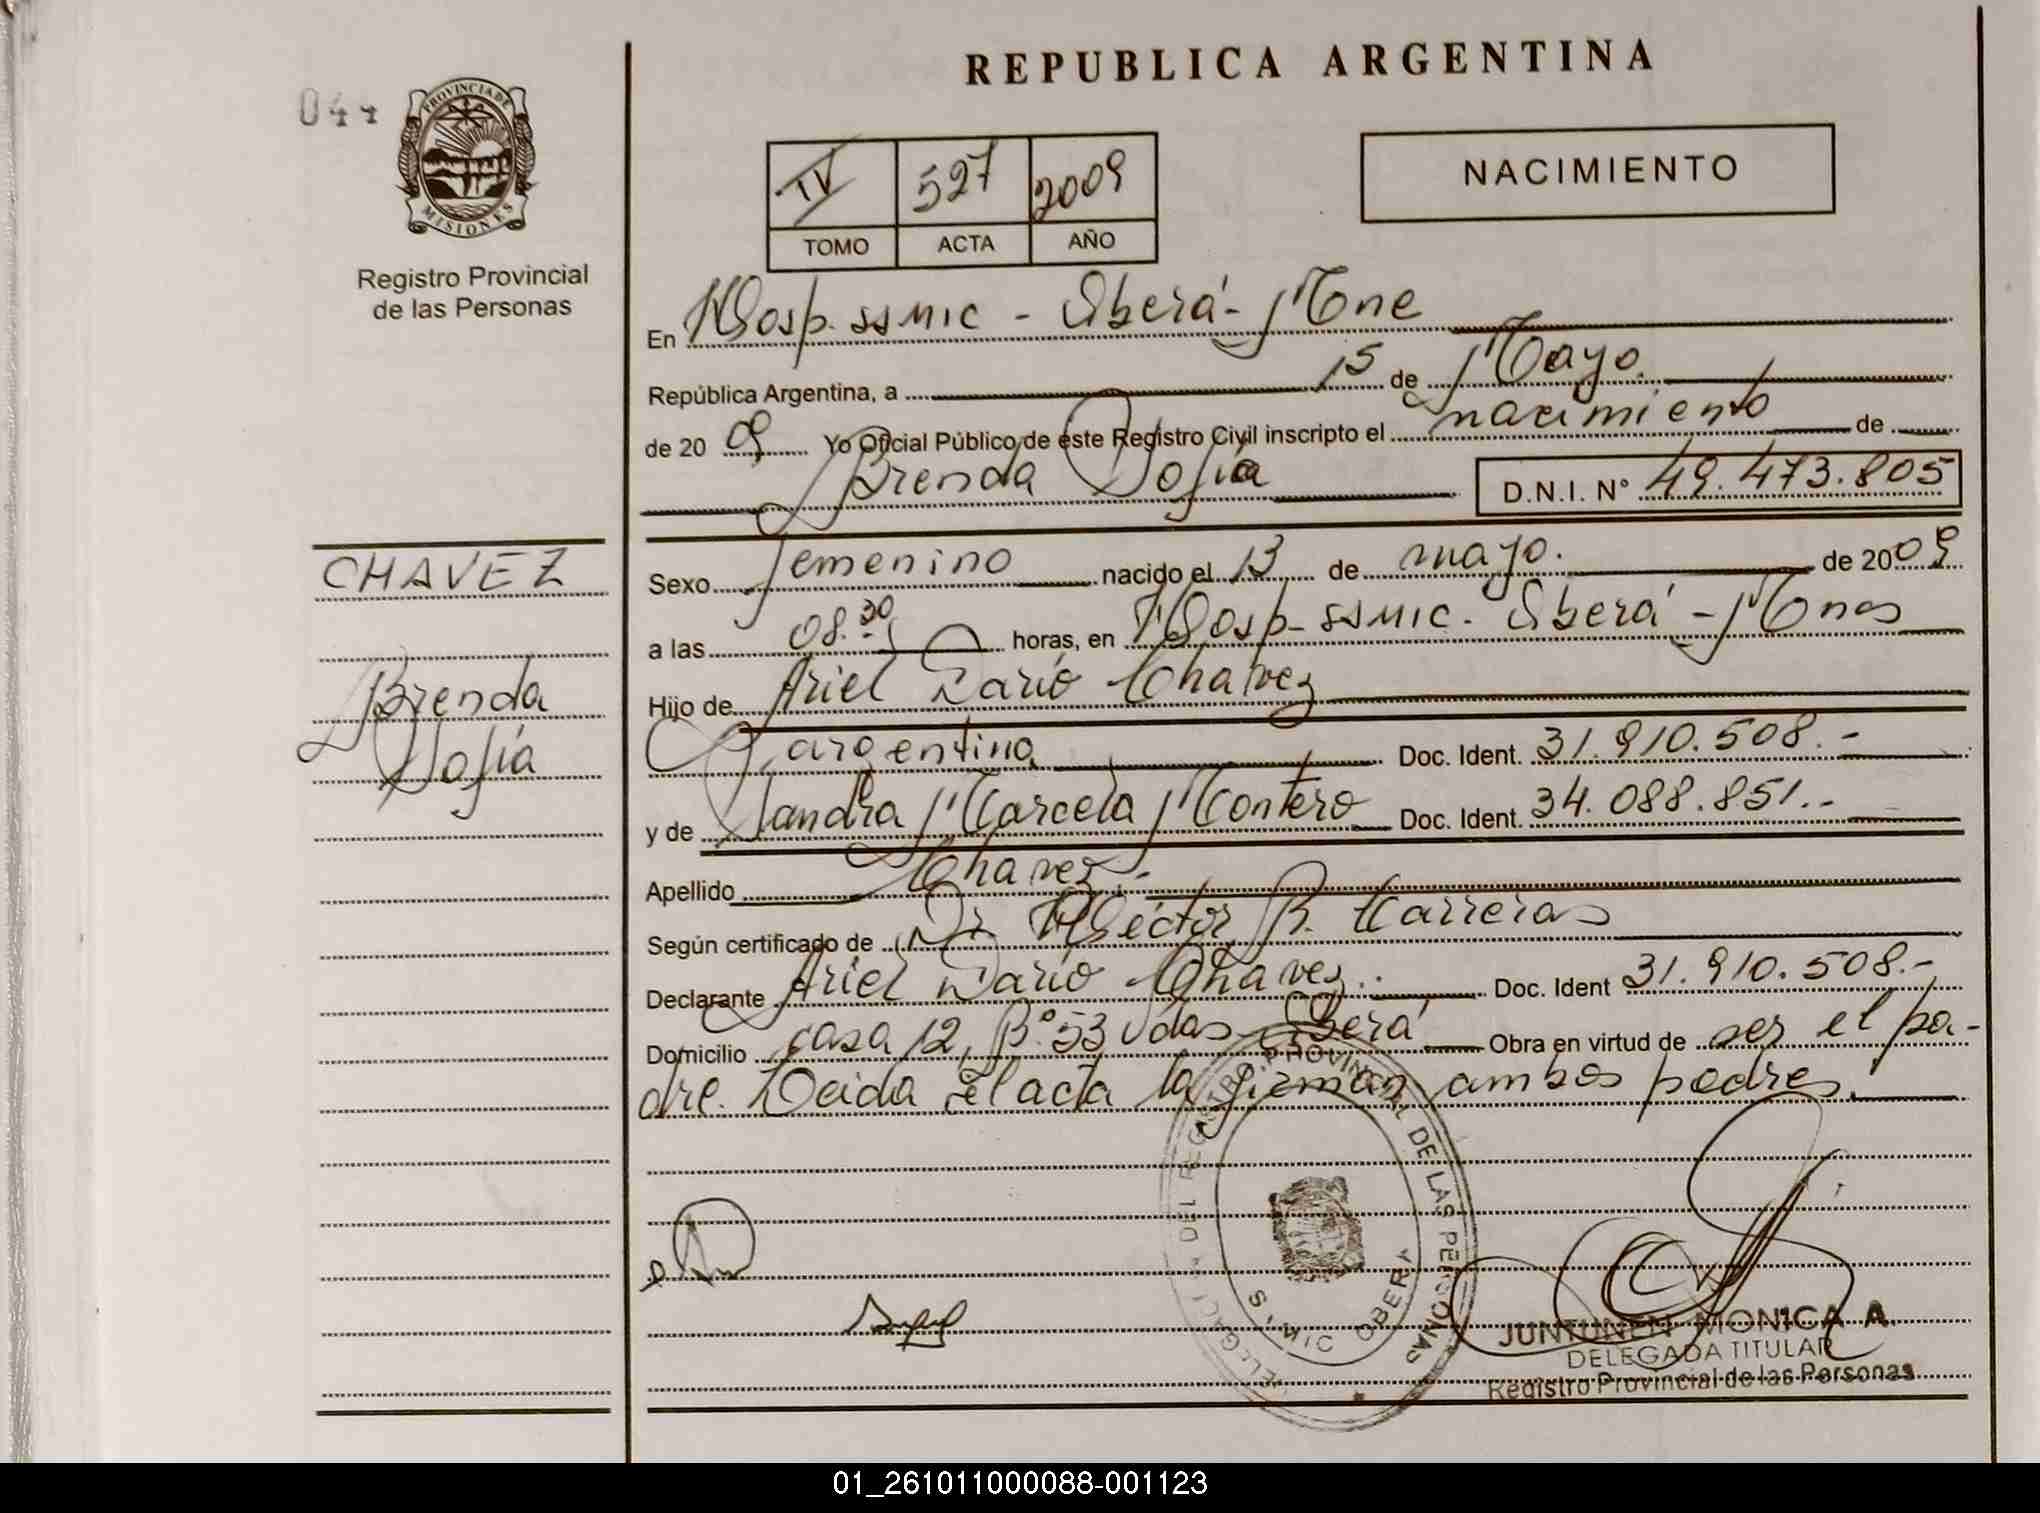 REPUBLICA ARGENTINA
044
PROVINCIA DE
MISIONES
Registro Provincial
de las Personas
IV 527 2009
TOMO ACTA AÑO
NACIMIENTO
En Hosp. SSMIC - Oberá - Mnes
República Argentina, a 15 de Mayo.
de 2009 Yo Oficial Público de este Registro Civil inscripto el nacimiento de
Brenda Sofía D.N.I. N° 49.473.805
CHAVEZ
Brenda
Sofía
Sexo femenino nacido el 13 de mayo. de 2009
a las 08.30 horas, en Hosp. SSMIC. Oberá - Mnes
Hijo de Ariel Darío Chavez
argentino Doc. Ident. 31.910.508.-
y de Sandra Marcela Montero Doc. Ident. 34.088.851.-
Apellido Chavez.-
Según certificado de Dr. Héctor R. Carreras
Declarante Ariel Darío Chavez. Doc. Ident 31.910.508.-
Domicilio casa 12, B° 53 Vdas Oberá Obra en virtud de ser el pa-
dre. Leida el acta la firman ambos padres.
DEL REGISTRO PROVINCIAL DE LAS PERSONAS
OBERA
JUNTUNEN MONICA A.
DELEGADA TITULAR
Registro Provincial de las Personas
01_261011000088-001123